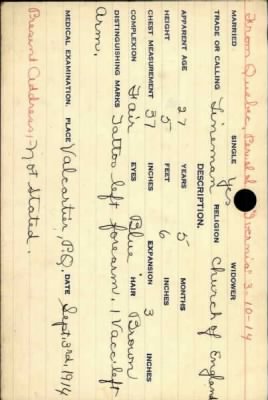 From Quebec, Per S.S. "Ivernia" 3-10-14
MARRIED SINGLE Yes WIDOWER
TRADE OR CALLING Lineman RELIGION Church of England
DESCRIPTION.
APPARENT AGE 27 YEARS 5 MONTHS
HEIGHT 5 FEET 6 INCHES
CHEST MEASUREMENT 37 INCHES EXPANSION 3 INCHES
COMPLEXION Fair EYES Blue HAIR Brown
DISTINGUISHING MARKS Tattoo left forearm. 1 Vacc left
Arm.
MEDICAL EXAMINATION. PLACE Valcartier, P.Q. DATE Sept. 3rd, 1914
Present Address, Not stated.